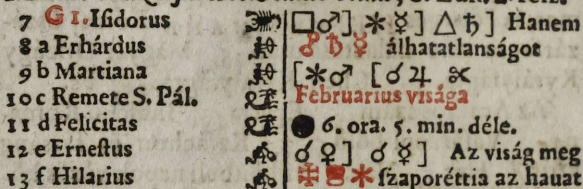 7 G 1. Isidorus □♂] ✱☿] △♄] Hanem
8 a Erhárdus ☍ ♄ ☿ álhatatlanságot
9 b Martiana [✱♂ [☌♃ ✂
10 c Remete S. Pál. Februarius viſága
11 d Felicitas ● 6. ora. 5. min. déle.
12 e Erneſtus ☌ ♀] ☌ ☿] Az viſág meg
13 f Hilarius ſzaporéttia az hauat